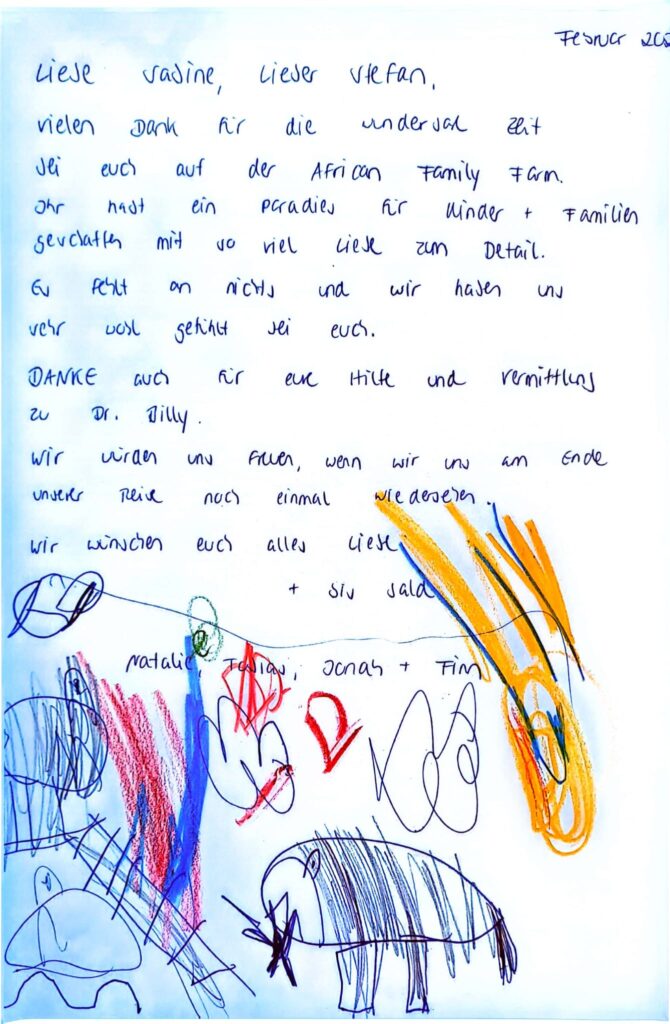 Februar 202
Liebe Sabine, Lieber Stefan,
vielen Dank für die wunderbare Zeit
bei euch auf der African Family Farm.
Ihr habt ein Paradies für Kinder + Familien
geschaffen mit so viel Liebe zum Detail.
Es fehlt an nichts und wir haben uns
sehr wohl gefühlt bei euch.
DANKE auch für eure Hilfe und Vermittlung
zu Dr. Billy.
Wir würden uns freuen, wenn wir uns am Ende
unserer Reise noch einmal wiedersehen.
Wir wünschen euch alles Liebe
+ bis bald
Natalie, Tobias, Jonah + Finn